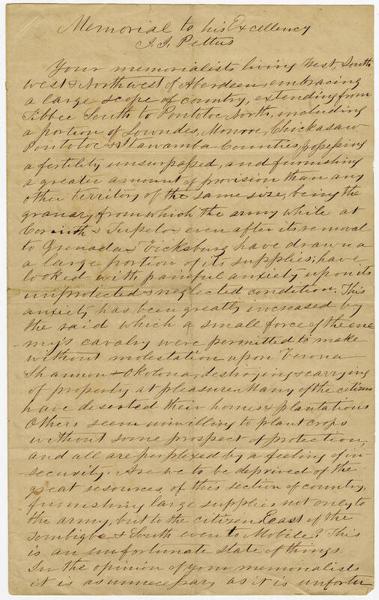 Memorial to his Excellency
J. J. Pettus
Your memorialists living West, South
west & Northwest of Aberdeen, embracing
a large scope of country, extending from
Tibbee South to Pontotoc North, including
a portion of Lowndes, Monroe, Chickasaw
Pontotoc & Itawamba Counties, possessing
a fertility unsurpassed, and furnishing
a greater amount of provision than any
other territory of the same size, being the
granary from which the army while at
Corinth & Tupelo or even after its removal
to Grenada & Vicksburg have drawn a
a large portion of its supplies, have
looked with painful anxiety upon its
unprotected & neglected condition. This
anxiety has been greatly increased by
the raid which a small force of the ene
my's cavalry were permitted to make
without molestation upon Verona
Shannon & Okolona, destroying & carrying
of property at pleasure. Many of the citizens
have deserted their homes & plantations
Others seem unwilling to plant crops
without some prospect of protection,
and all are perplexed by a feeling of in-
security. Are we to be deprived of the
great resources of this section of country,
furnishing large supplies not only to
the army, but to the citizens East of the
Tombigbee & South even to Mobile? This
is an unfortunate state of things.
In the opinion of your memorialists
it is as unnecessary as it is unfortu